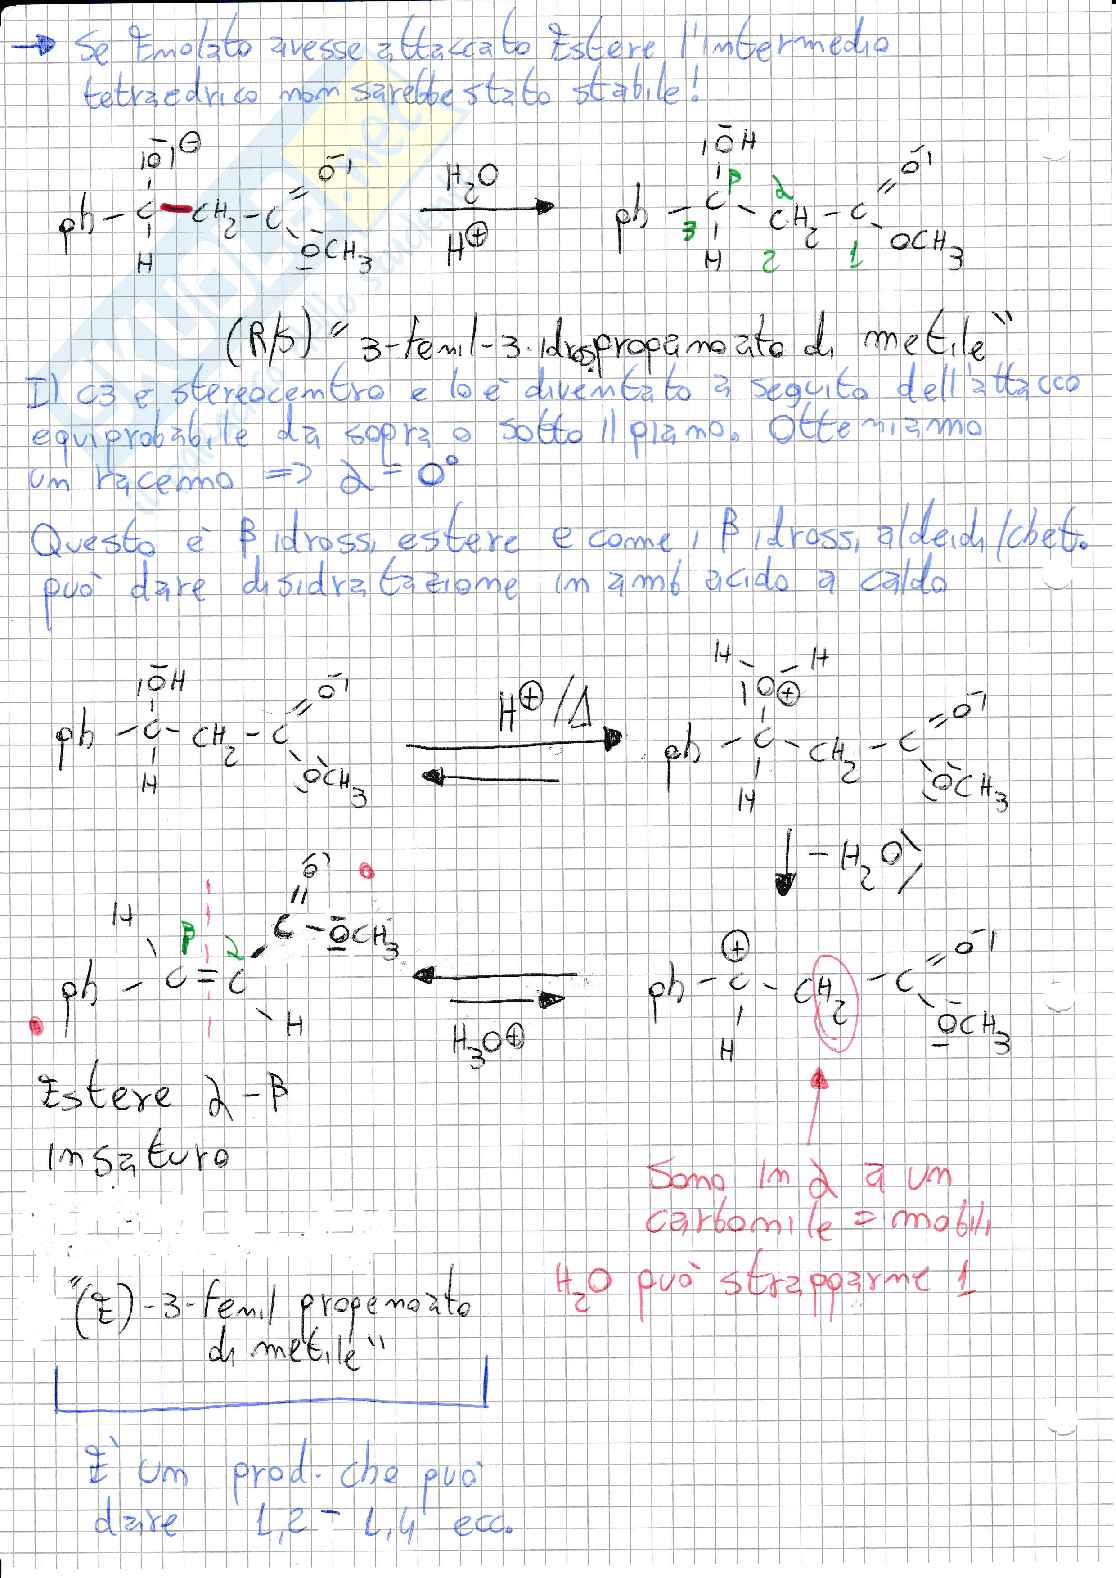 → Se Enolato avesse attaccato Estere l'intermedio
tetraedrico non sarebbe stato stabile!
|Ō|⊖
ph - C - CH2 - C
H
Ō|
ŌCH3
H2O
H⊕
|ŌH
ph - C - CH2 - C
H
Ō|
OCH3
β α
3 2 1
(R/S) "3-fenil-3-idrossipropanoato di metile"
Il C3 è stereocentro e lo è diventato a seguito dell'attacco
equiprobabile da sopra o sotto il piano. Otteniamo
un racemo => α = 0°
Questo è β idrossi estere e come i β idrossi aldeidi/chet.
può dare disidratazione in amb acido a caldo
|ŌH
ph - C - CH2 - C
H
Ō|
ŌCH3
H⊕/Δ
H H
|O⊕
ph - C - CH2 - C
H
Ō|
ŌCH3
- H2O
Ō|
H C - ŌCH3
β α
ph - C = C
H
H3O⊕
⊕
ph - C - CH2 - C
H
Ō|
ŌCH3
Estere α-β
insaturo
Sono in α a un
carbonile = mobili
H2O può strapparne 1
"(E)-3-fenil propenoato
di metile"
È un prod. che può
dare 1,2 - 1,4 ecc.